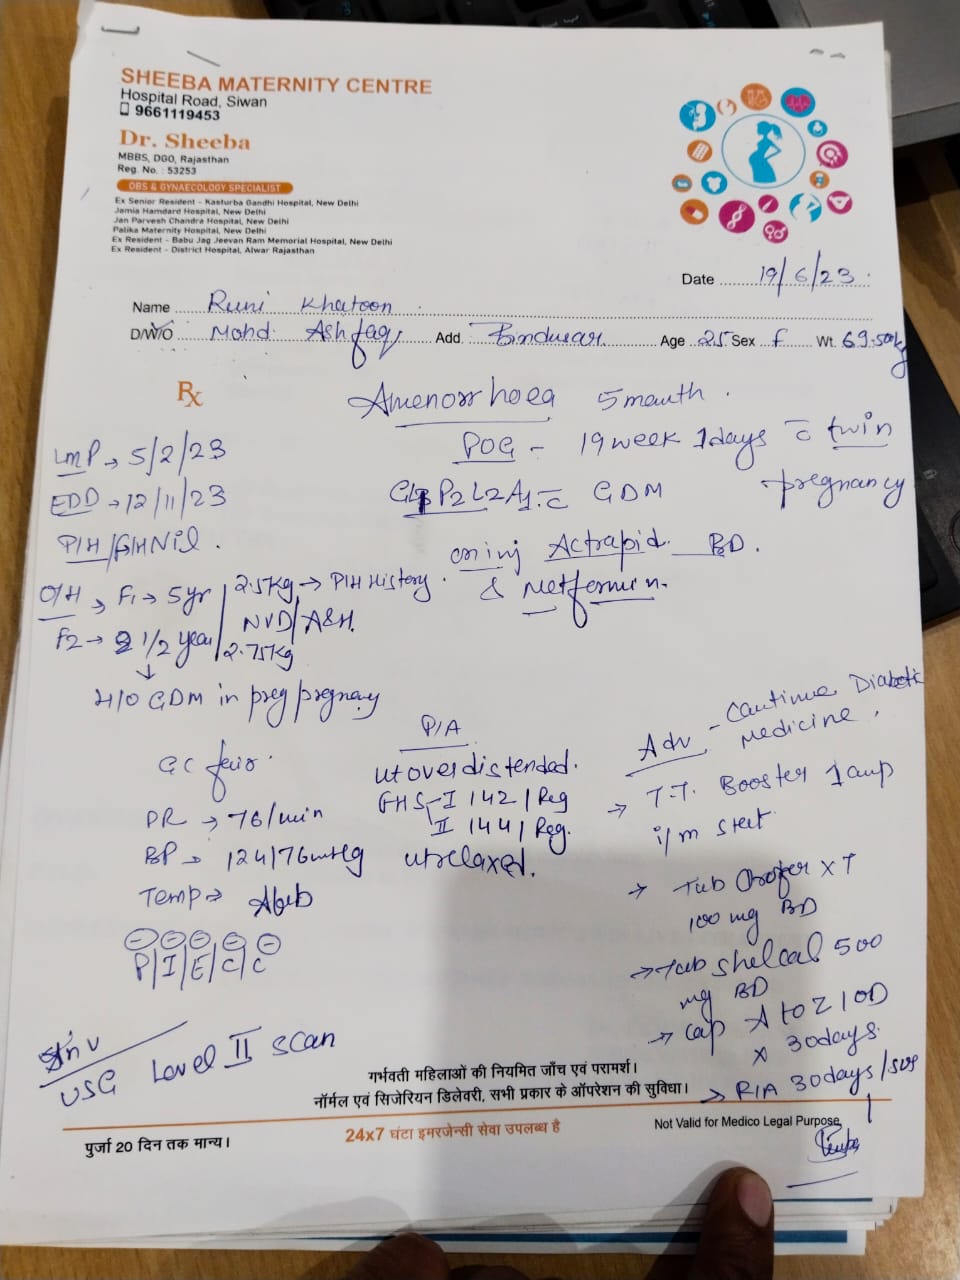 SHEEBA MATERNITY CENTRE
Hospital Road, Siwan
9661119453
Dr. Sheeba
MBBS, DGO, Rajasthan
Reg. No. : 53253
OBS & GYNAECOLOGY SPECIALIST
Ex Senior Resident - Kasturba Gandhi Hospital, New Delhi
Jamia Hamdard Hospital, New Delhi
Jan Parvesh Chandra Hospital, New Delhi
Palika Maternity Hospital, New Delhi
Ex Resident - Babu Jag Jeevan Ram Memorial Hospital, New Delhi
Ex Resident - District Hospital, Alwar Rajasthan
Date 19/6/23
Name Runi Khatoon
D/W/O Mohd. Ashfaq Add. Age 25 Sex F Wt. 69.500kg
Rx
Amenorrhoea 5 month.
POG - 19 week 1 days c twin pregnancy
G P2 L2 A1 c GDM
on inj Actrapid BD.
& Metformin.
LMP → 5/2/23
EDD → 12/11/23
P/H/ Nil.
O/H → F1 → 5 yr / 2.5kg → PIH History.
NVD/A&H.
F2 → 2 1/2 year / 2.75kg
H/O GDM in preg pregnancy
GC fair.
PR → 76/min
BP → 124/76mmHg
Temp → Afeb
P/I/E/C/C
P/A
ut overdistended.
FHS - I 142/Reg
II 144/Reg.
ut relaxed.
Adv - Continue Diabetic Medicine.
→ T.T. Booster 1 amp
i/m stat
→ Tab XT
100 mg BD
→ Tab Shelcal 500
mg BD
→ Cap A to Z 1 OD
x 30days.
→ R/A 30days/SOS
Inv
USG Level II Scan
गर्भवती महिलाओं की नियमित जाँच एवं परामर्श।
नॉर्मल एवं सिजेरियन डिलेवरी, सभी प्रकार के ऑपरेशन की सुविधा।
पुर्जा 20 दिन तक मान्य।
24x7 घंटा इमरजेन्सी सेवा उपलब्ध है
Not Valid for Medico Legal Purpose